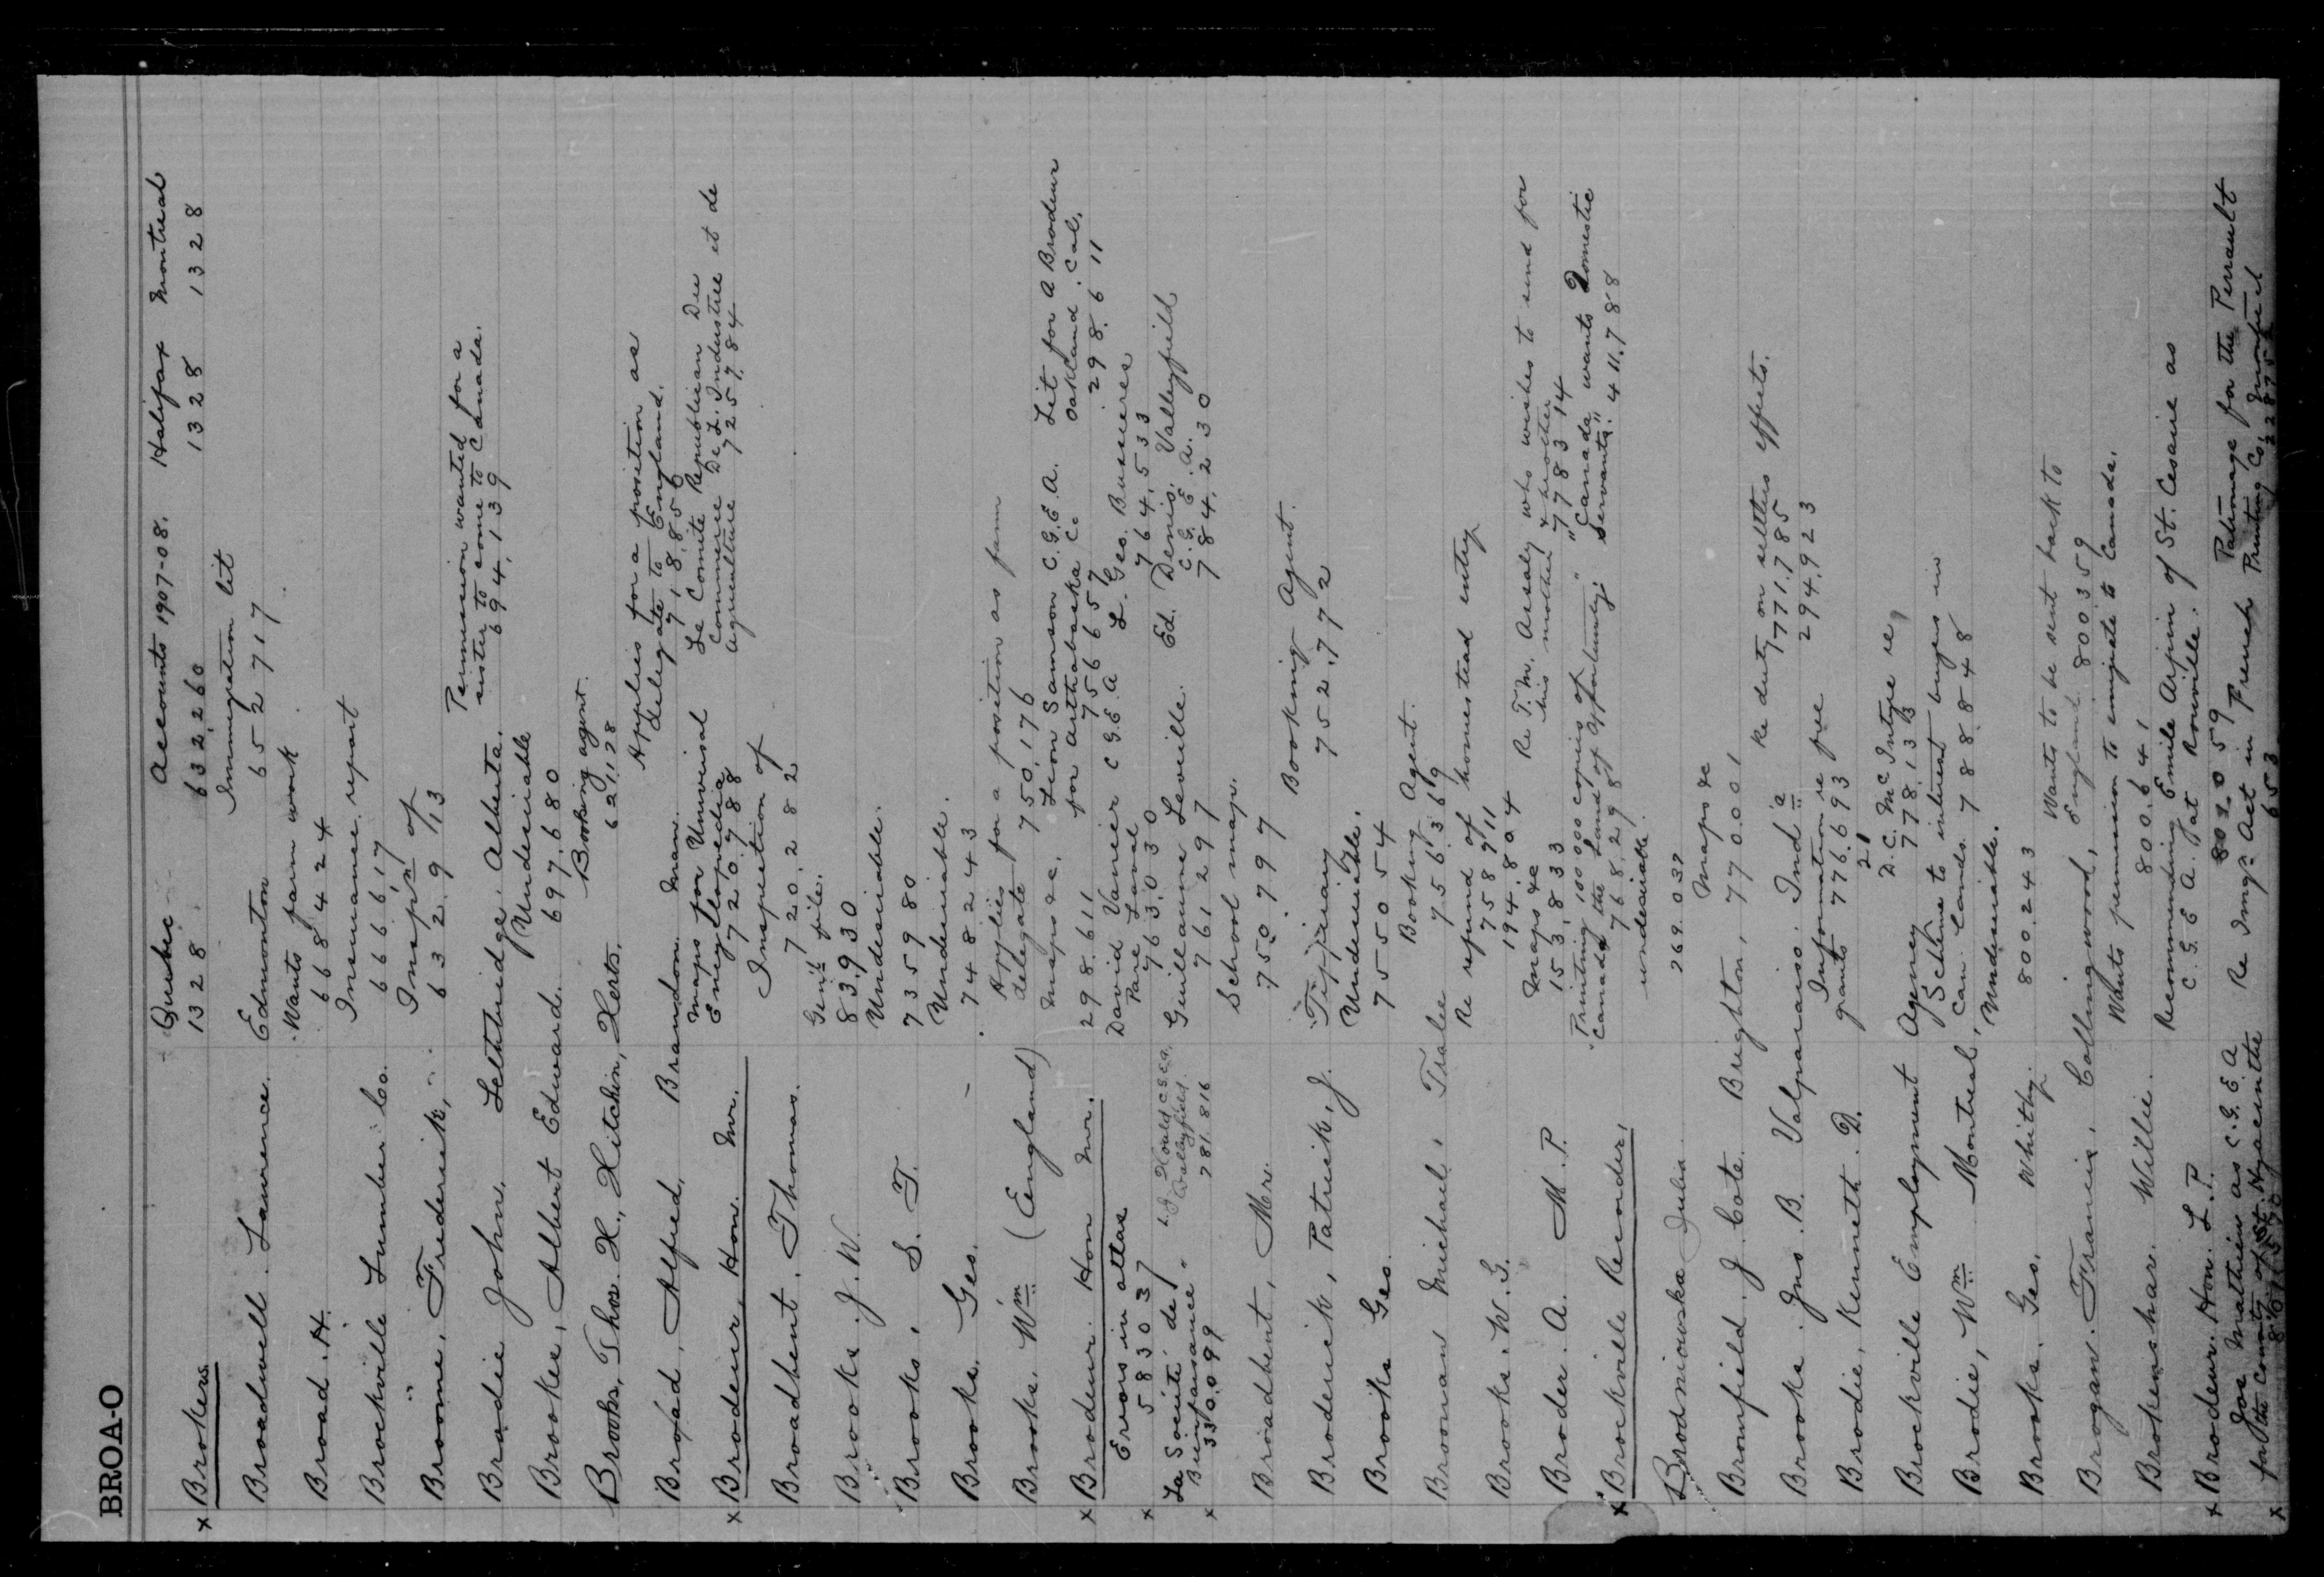 BROA-O
x Brokers. Quebec Accounts 1907-08. Halifax Montreal
1328 632,260 1328 1328
Broadwell Lawrence. Edmonton Immigration lit
652717
Broad. H. Wants farm work
668424
Brockville Lumber Co. Insurance report
666617
Broome, Frederick, Inspn of
6329/13
Brodie John. Lethbridge. Alberta. Permission wanted for a
sister to come to Canada.
694,139
Brooke, Albert Edward. Undesirable
697,680
Brooks, Thos. H., Hitchin, Herts. Booking agent.
621128
Broad, Alfred, Brandon. Man. Applies for a position as
delegate to England.
718,850
x Brodeur, Hon. Mr. Maps for Universal
Encyclopedia
720,788
Le Comite Republican Du
Commerce De L. Industrie et de
Agriculture 725,784
Broadbent, Thomas. Inspection of
720,282
Brooks J. W. Gen'l file.
83,930
Brooks, S. T. Undesirable.
735980
Brooks, Geo. Undesirable.
748243
Brooks, Wm (England) Applies for a position as farm
delegate 750,176
x Brodeur. Hon Mr. Maps &c.
298.611
Leon Samson C.G.E.A.
for Arthabaska Co
756657
Lit for A Brodeur
Oakland. Cal.
298.611
Errors in atlas
583037
David Vanier C.G.E.A
Pare Laval
763,030
L. Geo. Bussieres
764,533
x La Société de
Bienfaisance
330,099
Valleyfield.
281.816
Guillaume Leville.
761297
Ed. Denis. Valleyfield
C.G.E.A.
784,230
Broadbent, Mr. School map.
750.797
Broderick, Patrick, J. "Tipperary" Booking Agent.
752.772
Brooks Geo. Undesirable.
755054
Brooman Michael, Tralee Booking Agent.
756.369
Brooks. W. G. Re refund of homestead entry
758711
194.804
Broder. A. M.P. Maps &c
153,833
Re T. M. Assaly who wishes to send for
his mother & brother
778314
x Brockville Recorder, "Printing 100 000 copies of
Canada the Land of Opportunity"
768,298
"Canada wants Domestic
Servants." 411.788
Brodniowska Julia undesirable.
269.037
Bromfield. J Cote. Brighton, Maps &c
770.001
Brooks. Jno. B. Valparaiso. Inda Re duty on settlers effects.
771.785
Brodie, Kenneth. D. Information re free
grants 776.693
294,923
Brockville Employment Agency D. C. McIntyre re,
778,133
Brodie, Wm Montreal, Scheme to interest buyers in
Can. Lands. 788.848
Brooks. Geo. Whitby. Undesirable.
800.243
Brogan. Francis, Collingwood, Wants to be sent back to
England. 800359
Brokenshar. Willie. Wants permission to emigrate to Canada.
800.641
x Brodeur. Hon. L.P. Recommending Emile Arpin of St. Cesaire as
C.G.E.A. at Rouville.
803059
x Jos Mathieu as C.G.E.A
for the county of St. Hyacinthe
Re Imgn Act in French
653
Patronage for the Perrault
Printing Co., Montreal